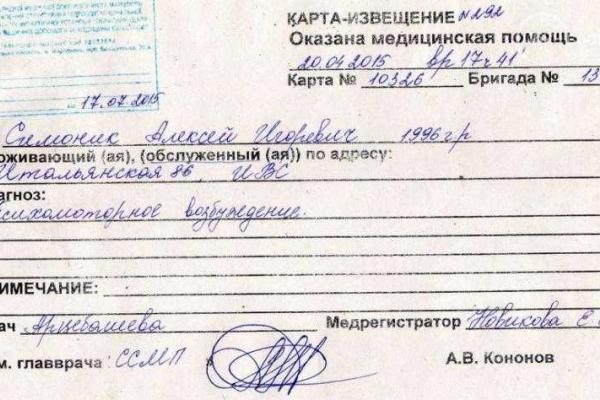 17.07.2015
КАРТА-ИЗВЕЩЕНИЕ №292
Оказана медицинская помощь
20.04.2015 вр 17ч 41
Карта № 10326 Бригада № 13
Симоник Алексей Игоревич 1996 г р
оживающий (ая), (обслуженный (ая)) по адресу:
Итальянская 86, ИВС
агноз:
психомоторное возбуждение.
ИМЕЧАНИЕ:
ач Арцебашева Медрегистратор Новикова Е.
м. главврача ССМП А.В. Кононов